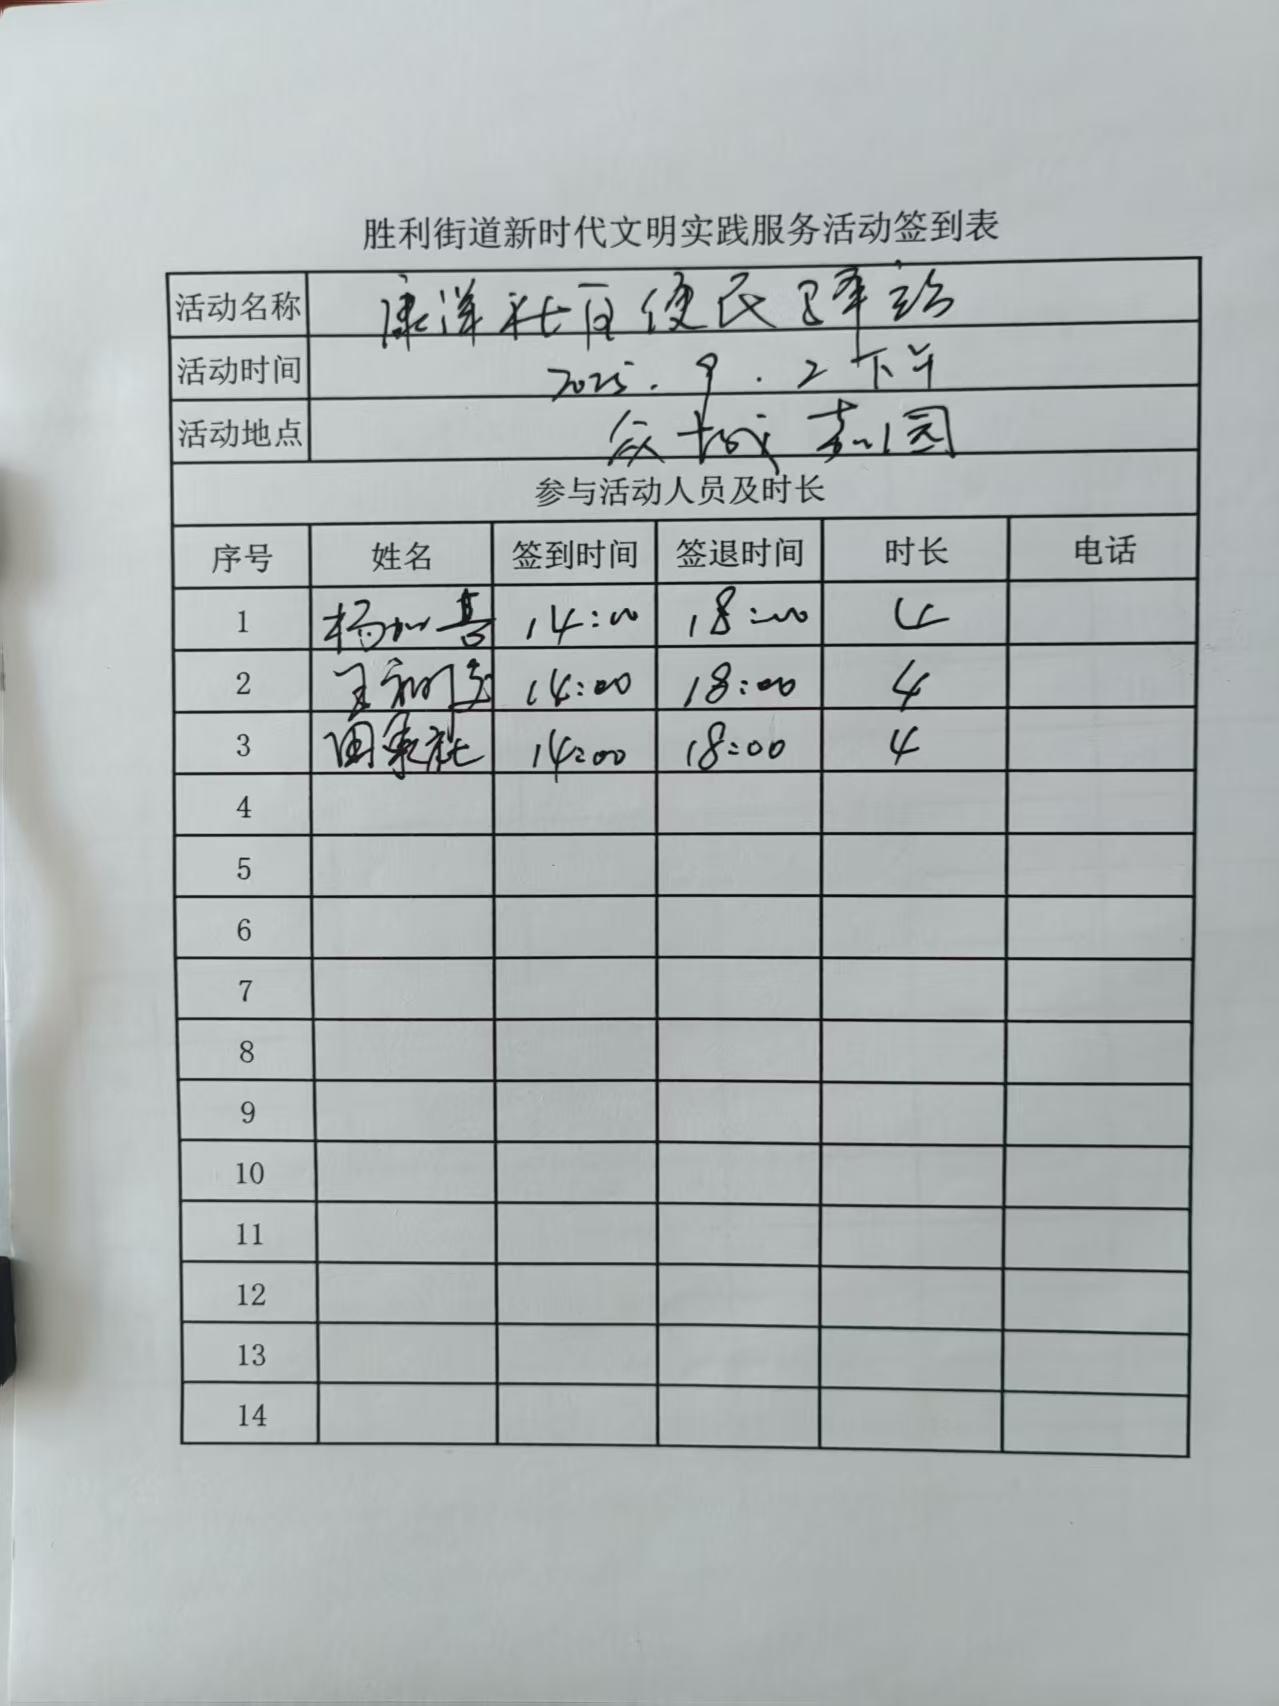 胜利街道新时代文明实践服务活动签到表
活动名称 康洋社百便民驿站
活动时间 2025.9.2下午
活动地点 众城嘉园
参与活动人员及时长
序号 姓名 签到时间 签退时间 时长 电话
1 杨加喜 14:00 18:00 4
2 王 14:00 18:00 4
3 周 14:00 18:00 4
4
5
6
7
8
9
10
11
12
13
14